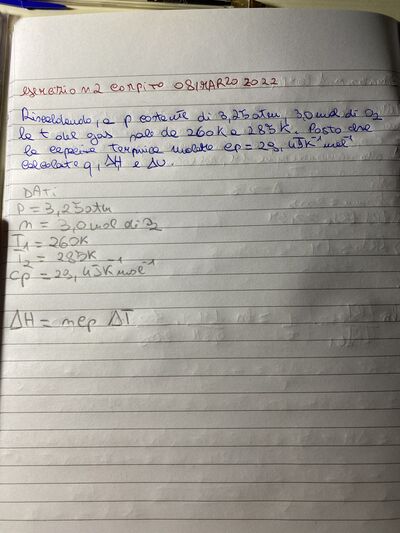 esercizio n2 compito 08 MARZO 2022
Riscaldendo, a p costante di 3,25atm, 3,0 mol di O2
la t del gas sale da 260K a 285K. Posto che
la capacità termica molare cp = 29,4JK⁻¹mol⁻¹
calcolate q, ΔH e ΔU.
DATi
P = 3,25atm
n = 3,0mol di O2
T1 = 260K
T2 = 285K
cp = 29,4JK⁻¹mol⁻¹
ΔH = ncp ΔT